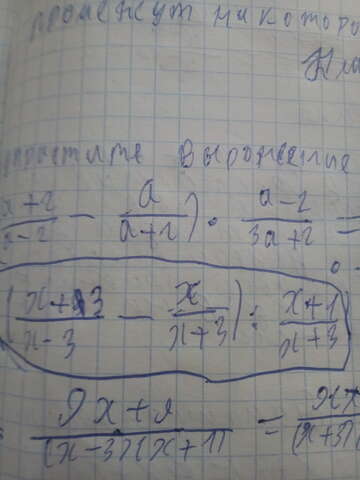 промежут на которо
Кла
упростите выражение
(a+2/a-2 - a/a+2) · a-2/3a+2 =
(x+3/x-3 - x/x+3) : x+1/x+3
9x+9/(x-3)(x+1) =